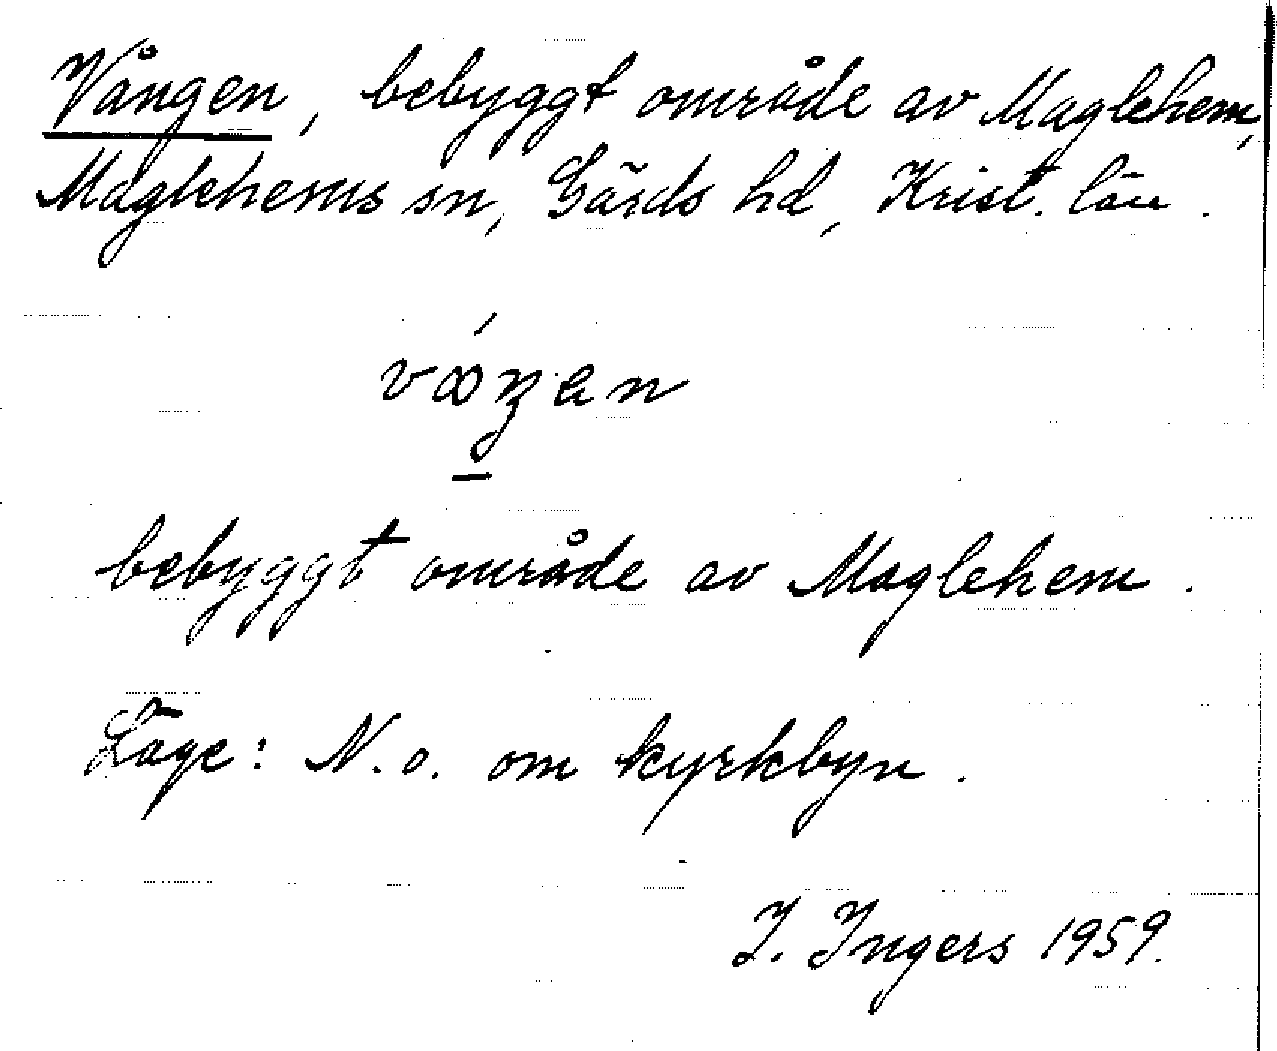 Vången, bebyggt område av Maglehem,
Maglehems sn, Gärds hd, Krist. län.
bebyggt område av Maglehem.
Läge: N.o. om kyrkbyn.
I. Ingers 1959.